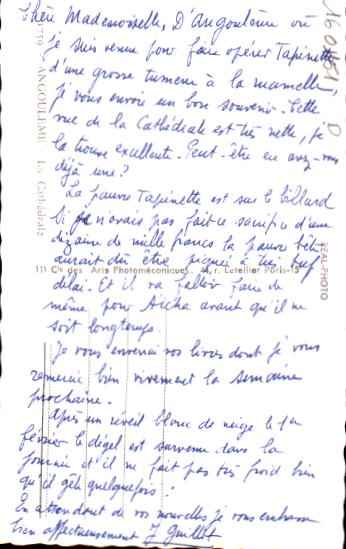 Chère Mademoiselle, D'Angoulême où
je suis venue pour faire opérer Tapinette
d'une grosse tumeur à la mamelle,
je vous envoie un bon souvenir. Cette
vue de la Cathédrale est très nette, je
la trouve excellente. Peut-être en avez-vous
déjà une ?
La pauvre Tapinette est sur le billard
Si je n'avais pas fait ce sacrifice d'une
dizaine de mille francs la pauvre bête
aurait dû être piquée à très bref
délai. Et il va falloir faire de
même pour Aïcha avant qu'il ne
soit longtemps.
Je vous enverrai vos livres dont je vous
remercie bien vivement la semaine
prochaine.
Après un réveil blanc de neige le 1er
février le dégel est survenu dans la
journée et il ne fait pas très froid bien
qu'il gèle quelquefois.
En attendant de vos nouvelles je vous embrasse
bien affectueusement J Guillot
ANGOULEME - La Cathédrale
111 Cie des Arts Photomécaniques, 44, r. Letellier Paris-15
REAL-PHOTO